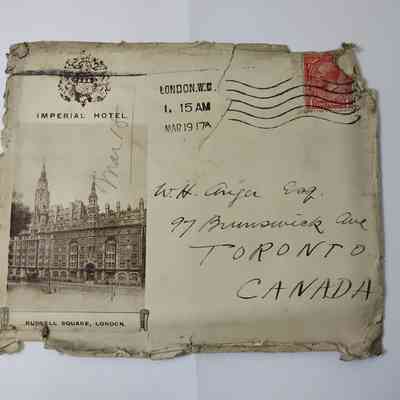 IMPERIAL HOTEL
LONDON.W.C.
1. 15 AM
MAR 19 17
Mar 18
W.H. Anger Esq.
97 Brunswick Ave
TORONTO
CANADA
RUSSELL SQUARE, LONDON.